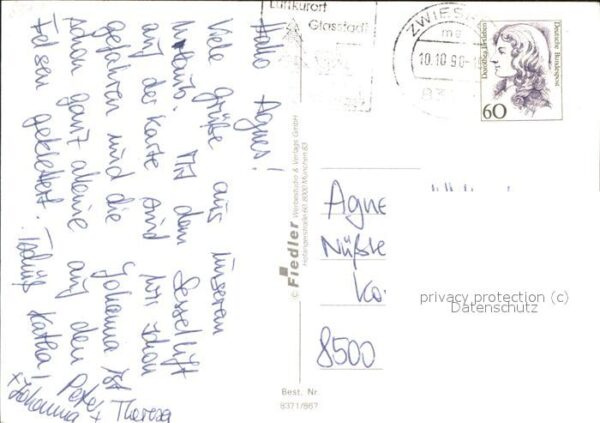 Hallo Agnes!
Viele Grüße aus unserem
Urlaub. Mit dem Sessellift
auf der Karte sind wir schon
gefahren und die Johanna ist
schon ganz alleine auf den
Felsen geklettert.
Tschüß Katha, Peter
+ Johanna + Theresa
Luftkurort
Glasstadt
ZWIESEL
10.10.90
Deutsche Bundespost
Dorothea Erxleben
60
© Fiedler Werbestudio & Verlags GmbH
8000 München 83
Best. Nr.
8371/867
Agne
Nüßle
Ko.
8500
privacy protection (c)
Datenschutz